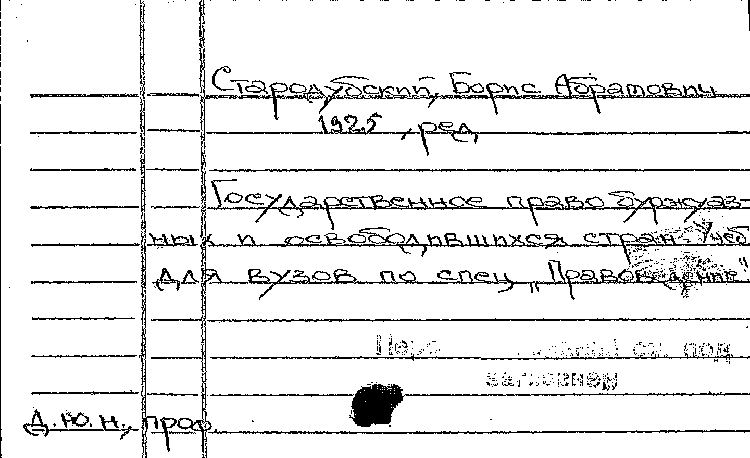 Стародубский, Борис Абрамович
1925 , ред.
Государственное право буржуаз-
ных и освободившихся стран: Учеб
для вузов по спец. „Правоведение"
см. под
заглавием
Д.ю.н., проф.